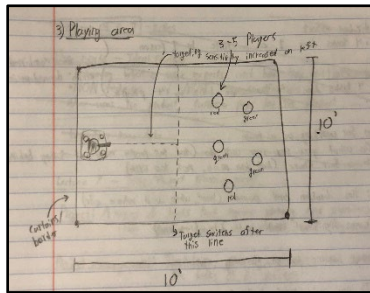 3) Playing area
3-5 Players
targeting sensitivity increased on left
red
green
green
green
red
10'
Curtains/
border
Target switches after
this line
10'